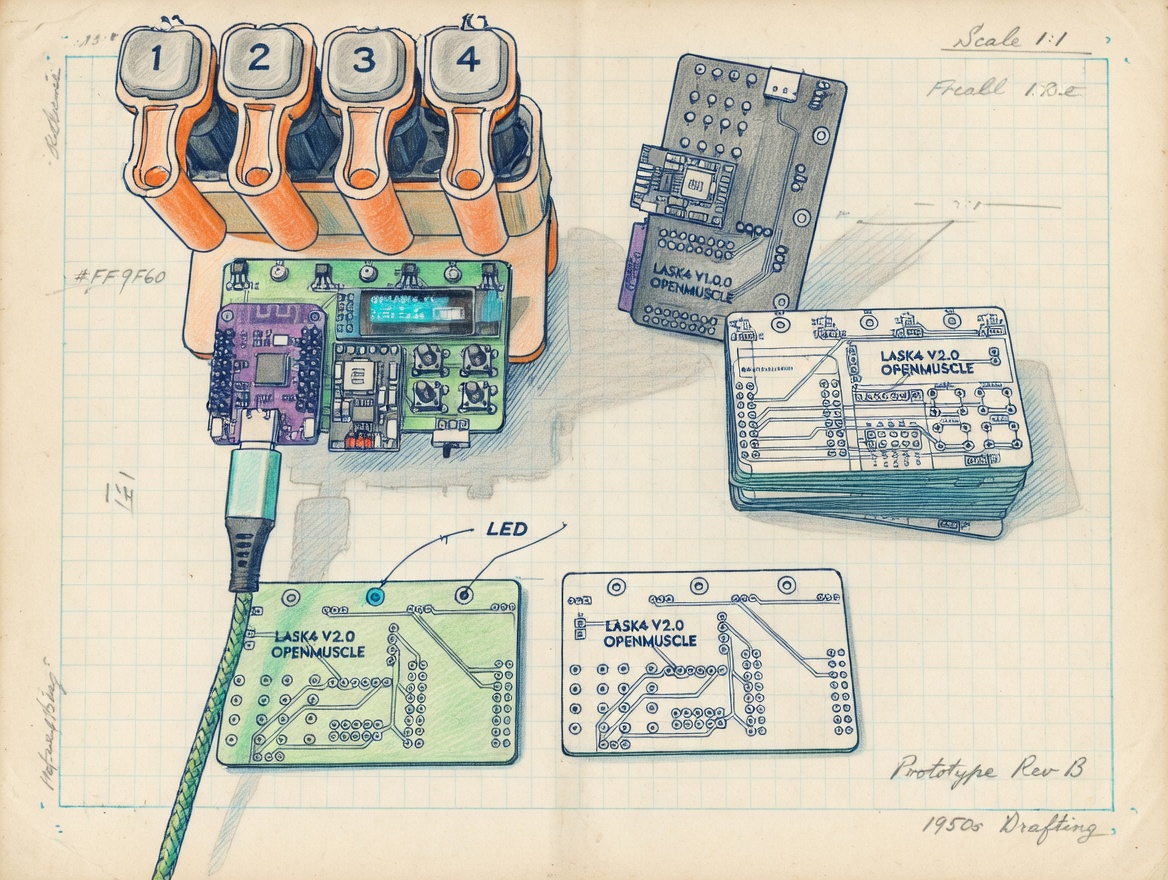 Scale 1:1
1
2
3
4
#FF9F60
LASK4 V1.0.0
OPENMUSCLE
LASK4 V2.0
OPENMUSCLE
LED
LASK4 V2.0
OPENMUSCLE
LASK4 V2.0
OPENMUSCLE
Prototype Rev B
1950s Drafting